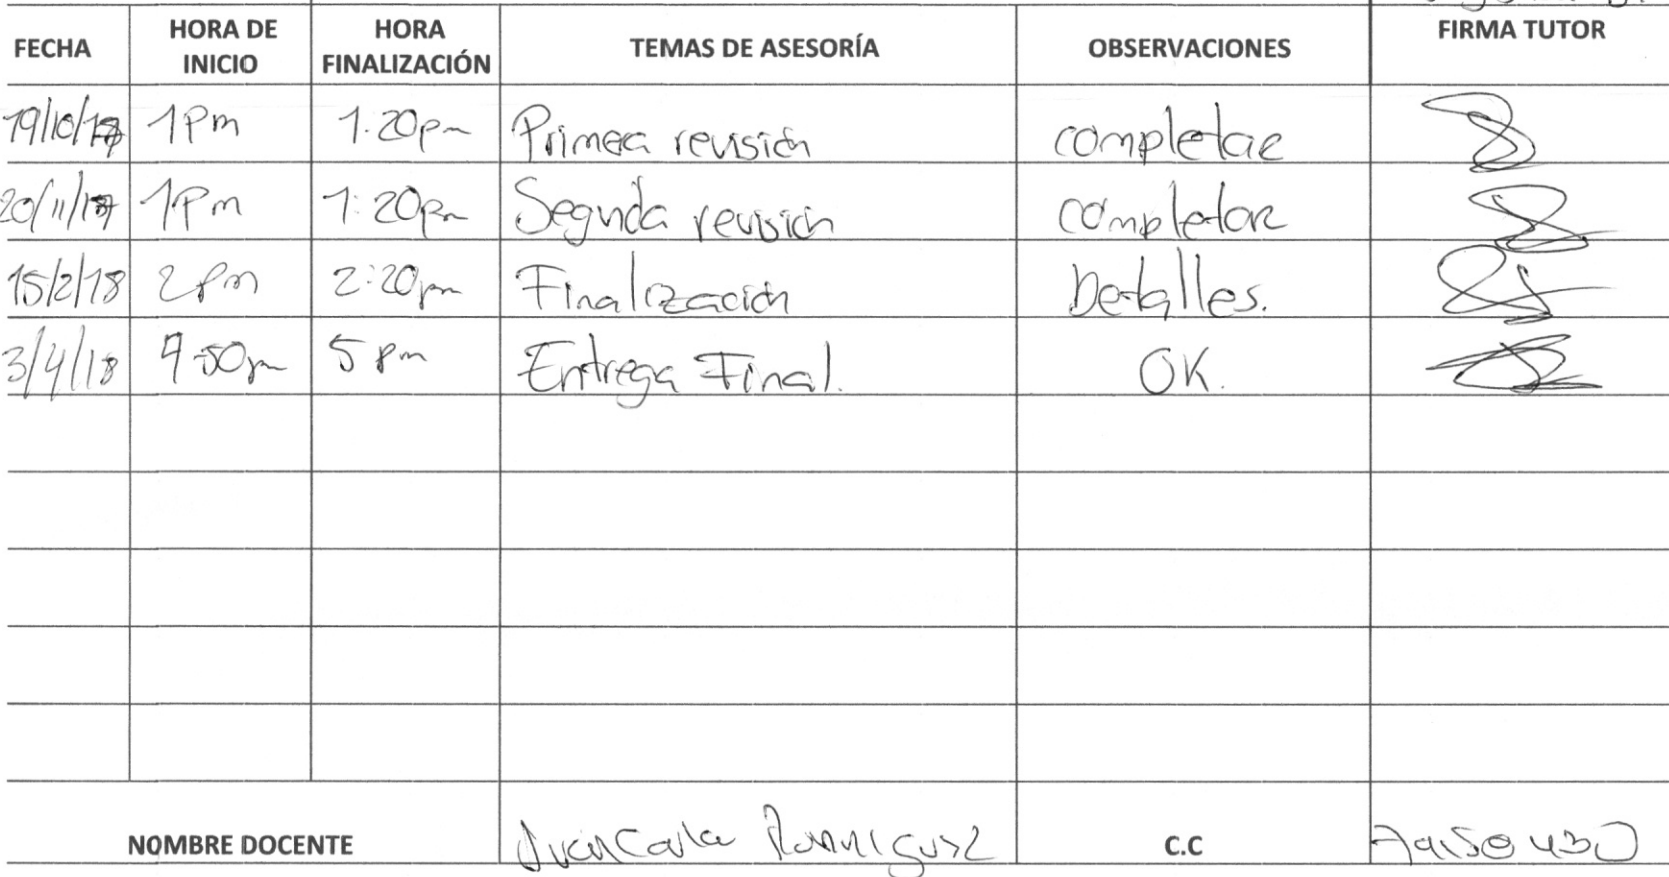 FECHA HORA DE INICIO HORA FINALIZACIÓN TEMAS DE ASESORÍA OBSERVACIONES FIRMA TUTOR
19/10/17 1Pm 1:20pm Primera revisión completar
20/11/17 1Pm 1:20pm Segunda revisión completar
15/2/18 2Pm 2:20pm Finalización Detalles.
3/4/18 5 pm Entrega Final. OK.
NOMBRE DOCENTE Juan Carlos Rodriguez C.C